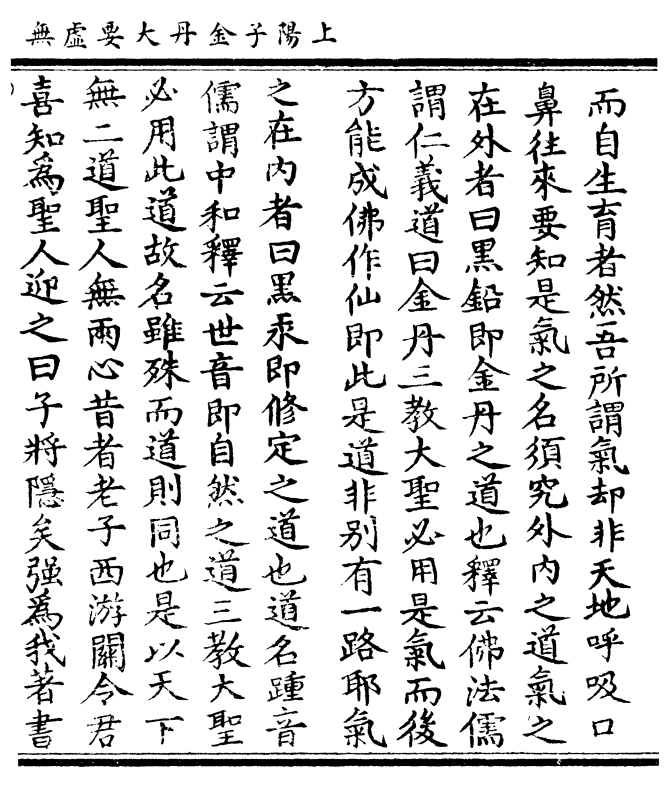 上陽子金丹大要虛無
而自生育者然吾所謂氣却非天地呼吸口
鼻往來要知是氣之名須究外内之道氣之
在外者曰黑鉛即金丹之道也釋云佛法儒
謂仁義道曰金丹三教大聖必用是氣而後
方能成佛作仙即此是道非别有一路耶氣
之在内者曰黑汞即修定之道也道名踵音
儒謂中和釋云世音即自然之道三教大聖
必用此道故名雖殊而道則同也是以天下
無二道聖人無兩心昔者老子西游關令君
喜知爲聖人迎之曰子將隱矣强爲我著書